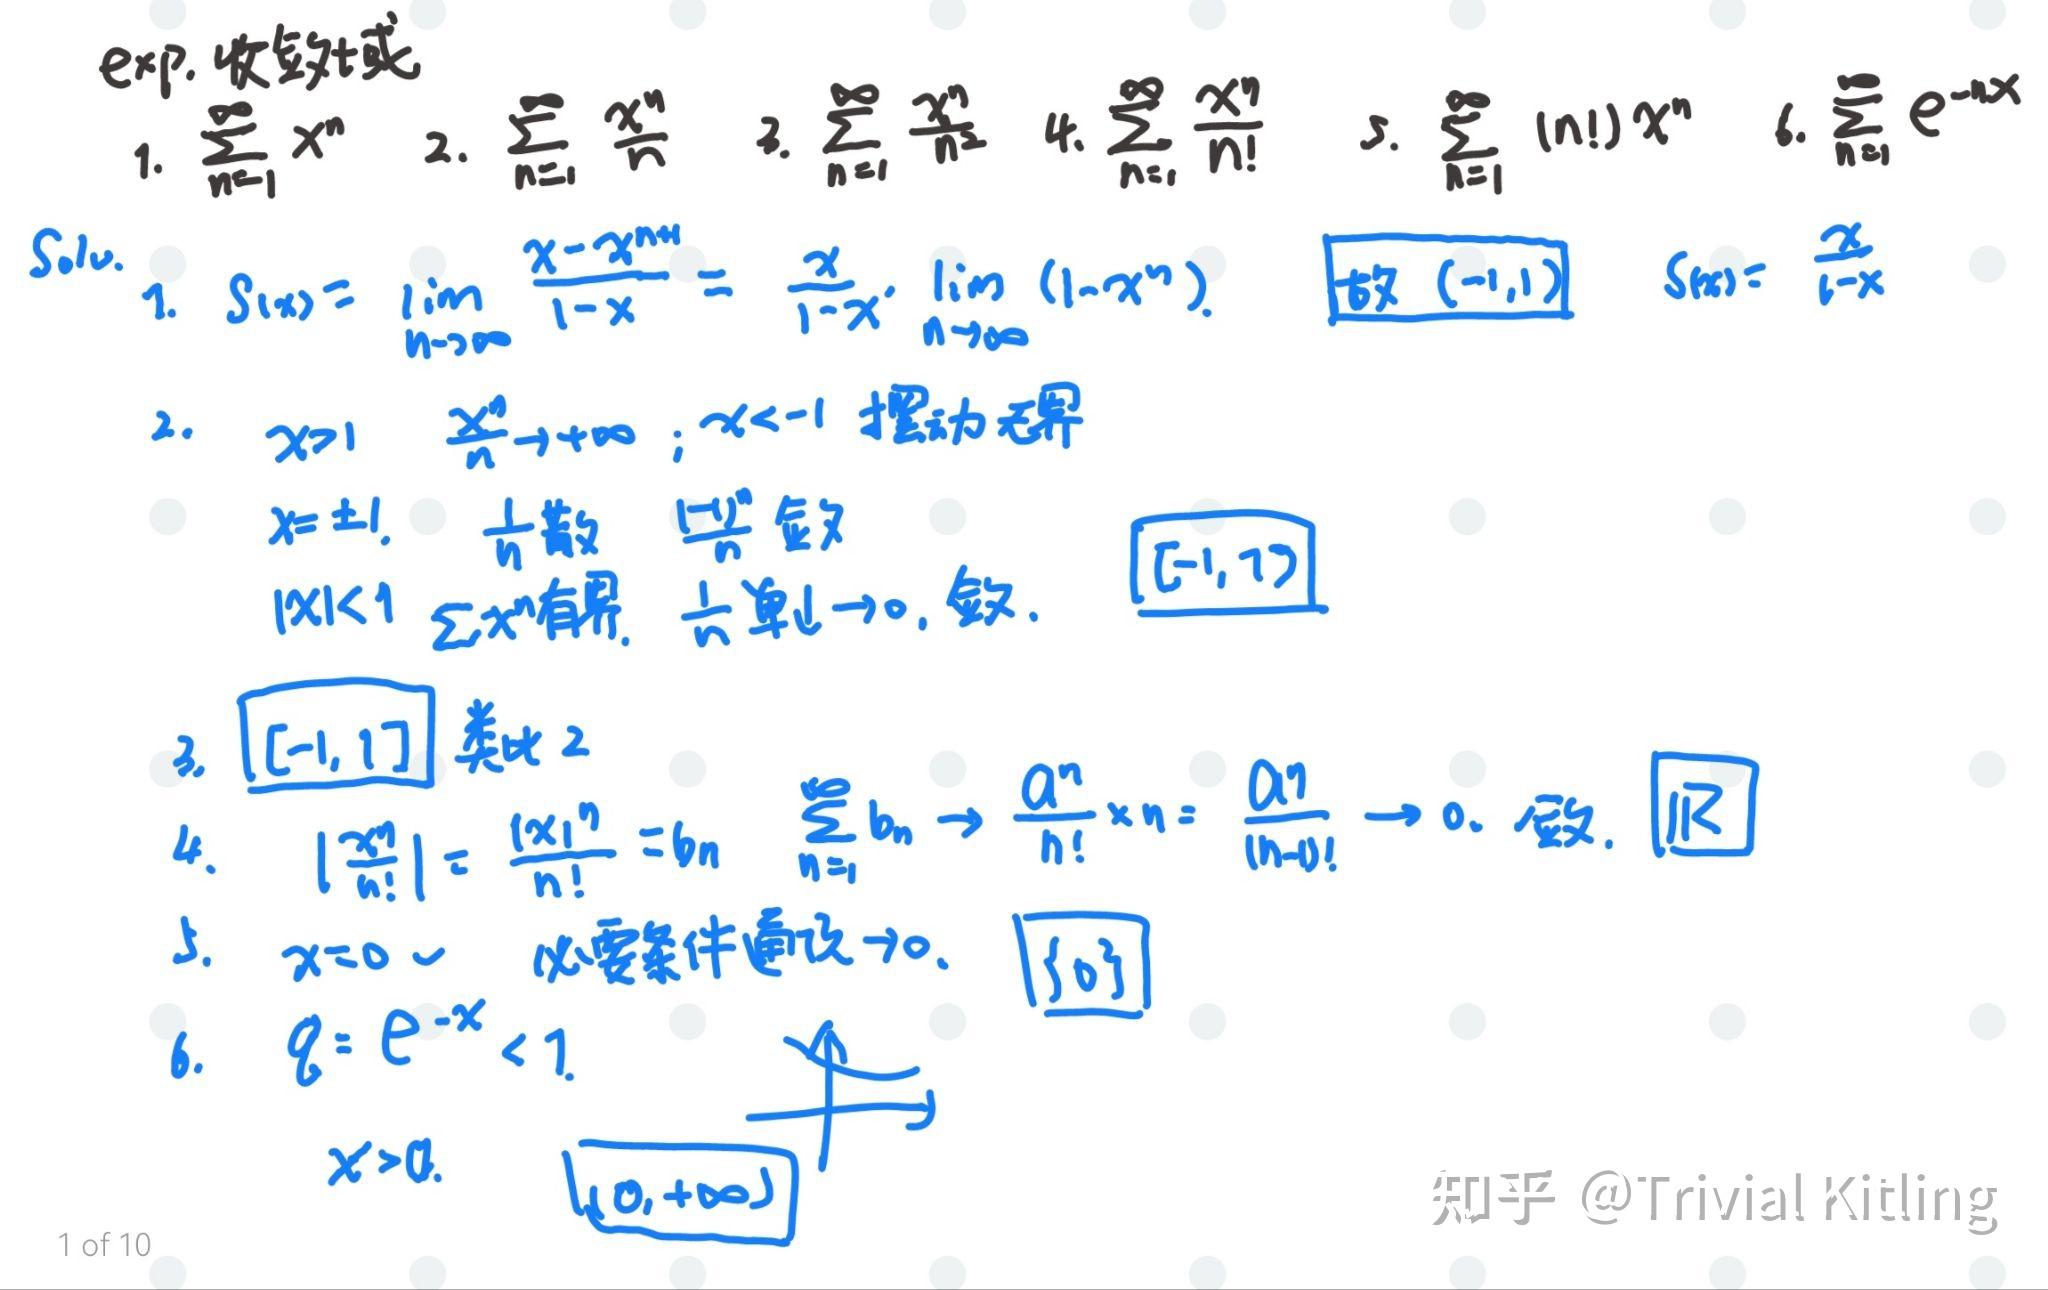 exp. 收敛域
1. $\sum_{n=1}^{\infty} x^n$ 2. $\sum_{n=1}^{\infty} \frac{x^n}{n}$ 3. $\sum_{n=1}^{\infty} \frac{x^n}{n^2}$ 4. $\sum_{n=1}^{\infty} \frac{x^n}{n!}$ 5. $\sum_{n=1}^{\infty} (n!) x^n$ 6. $\sum_{n=1}^{\infty} e^{-nx}$
Solu. 1. $S(x) = \lim_{n\to\infty} \frac{x-x^{n+1}}{1-x} = \frac{x}{1-x} \cdot \lim_{n\to\infty} (1-x^n).$ 故 $(-1,1)$ $S(x) = \frac{x}{1-x}$
2. $x>1$ $\frac{x^n}{n} \to +\infty$ ; $x<-1$ 摆动无界
$x=\pm1.$ $\frac{1}{n}$ 散 $\frac{(-1)^n}{n}$ 敛
$|x|<1$ $\sum x^n$ 有界. $\frac{1}{n}$ 单↓→0. 敛. $[-1,1)$
3. $[-1,1]$ 类比 2
4. $|\frac{x^n}{n!}| = \frac{|x|^n}{n!} = b_n$ $\sum_{n=1}^{\infty} b_n \to \frac{a^n}{n!} \times n = \frac{a^n}{(n-1)!} \to 0.$ 敛. $\mathbb{R}$
5. $x=0$ ✓ 必要条件通项→0. $\{0\}$
6. $q = e^{-x} < 1.$
$x>0.$ $(0,+\infty)$
知乎 @Trivial Kitling
1 of 10